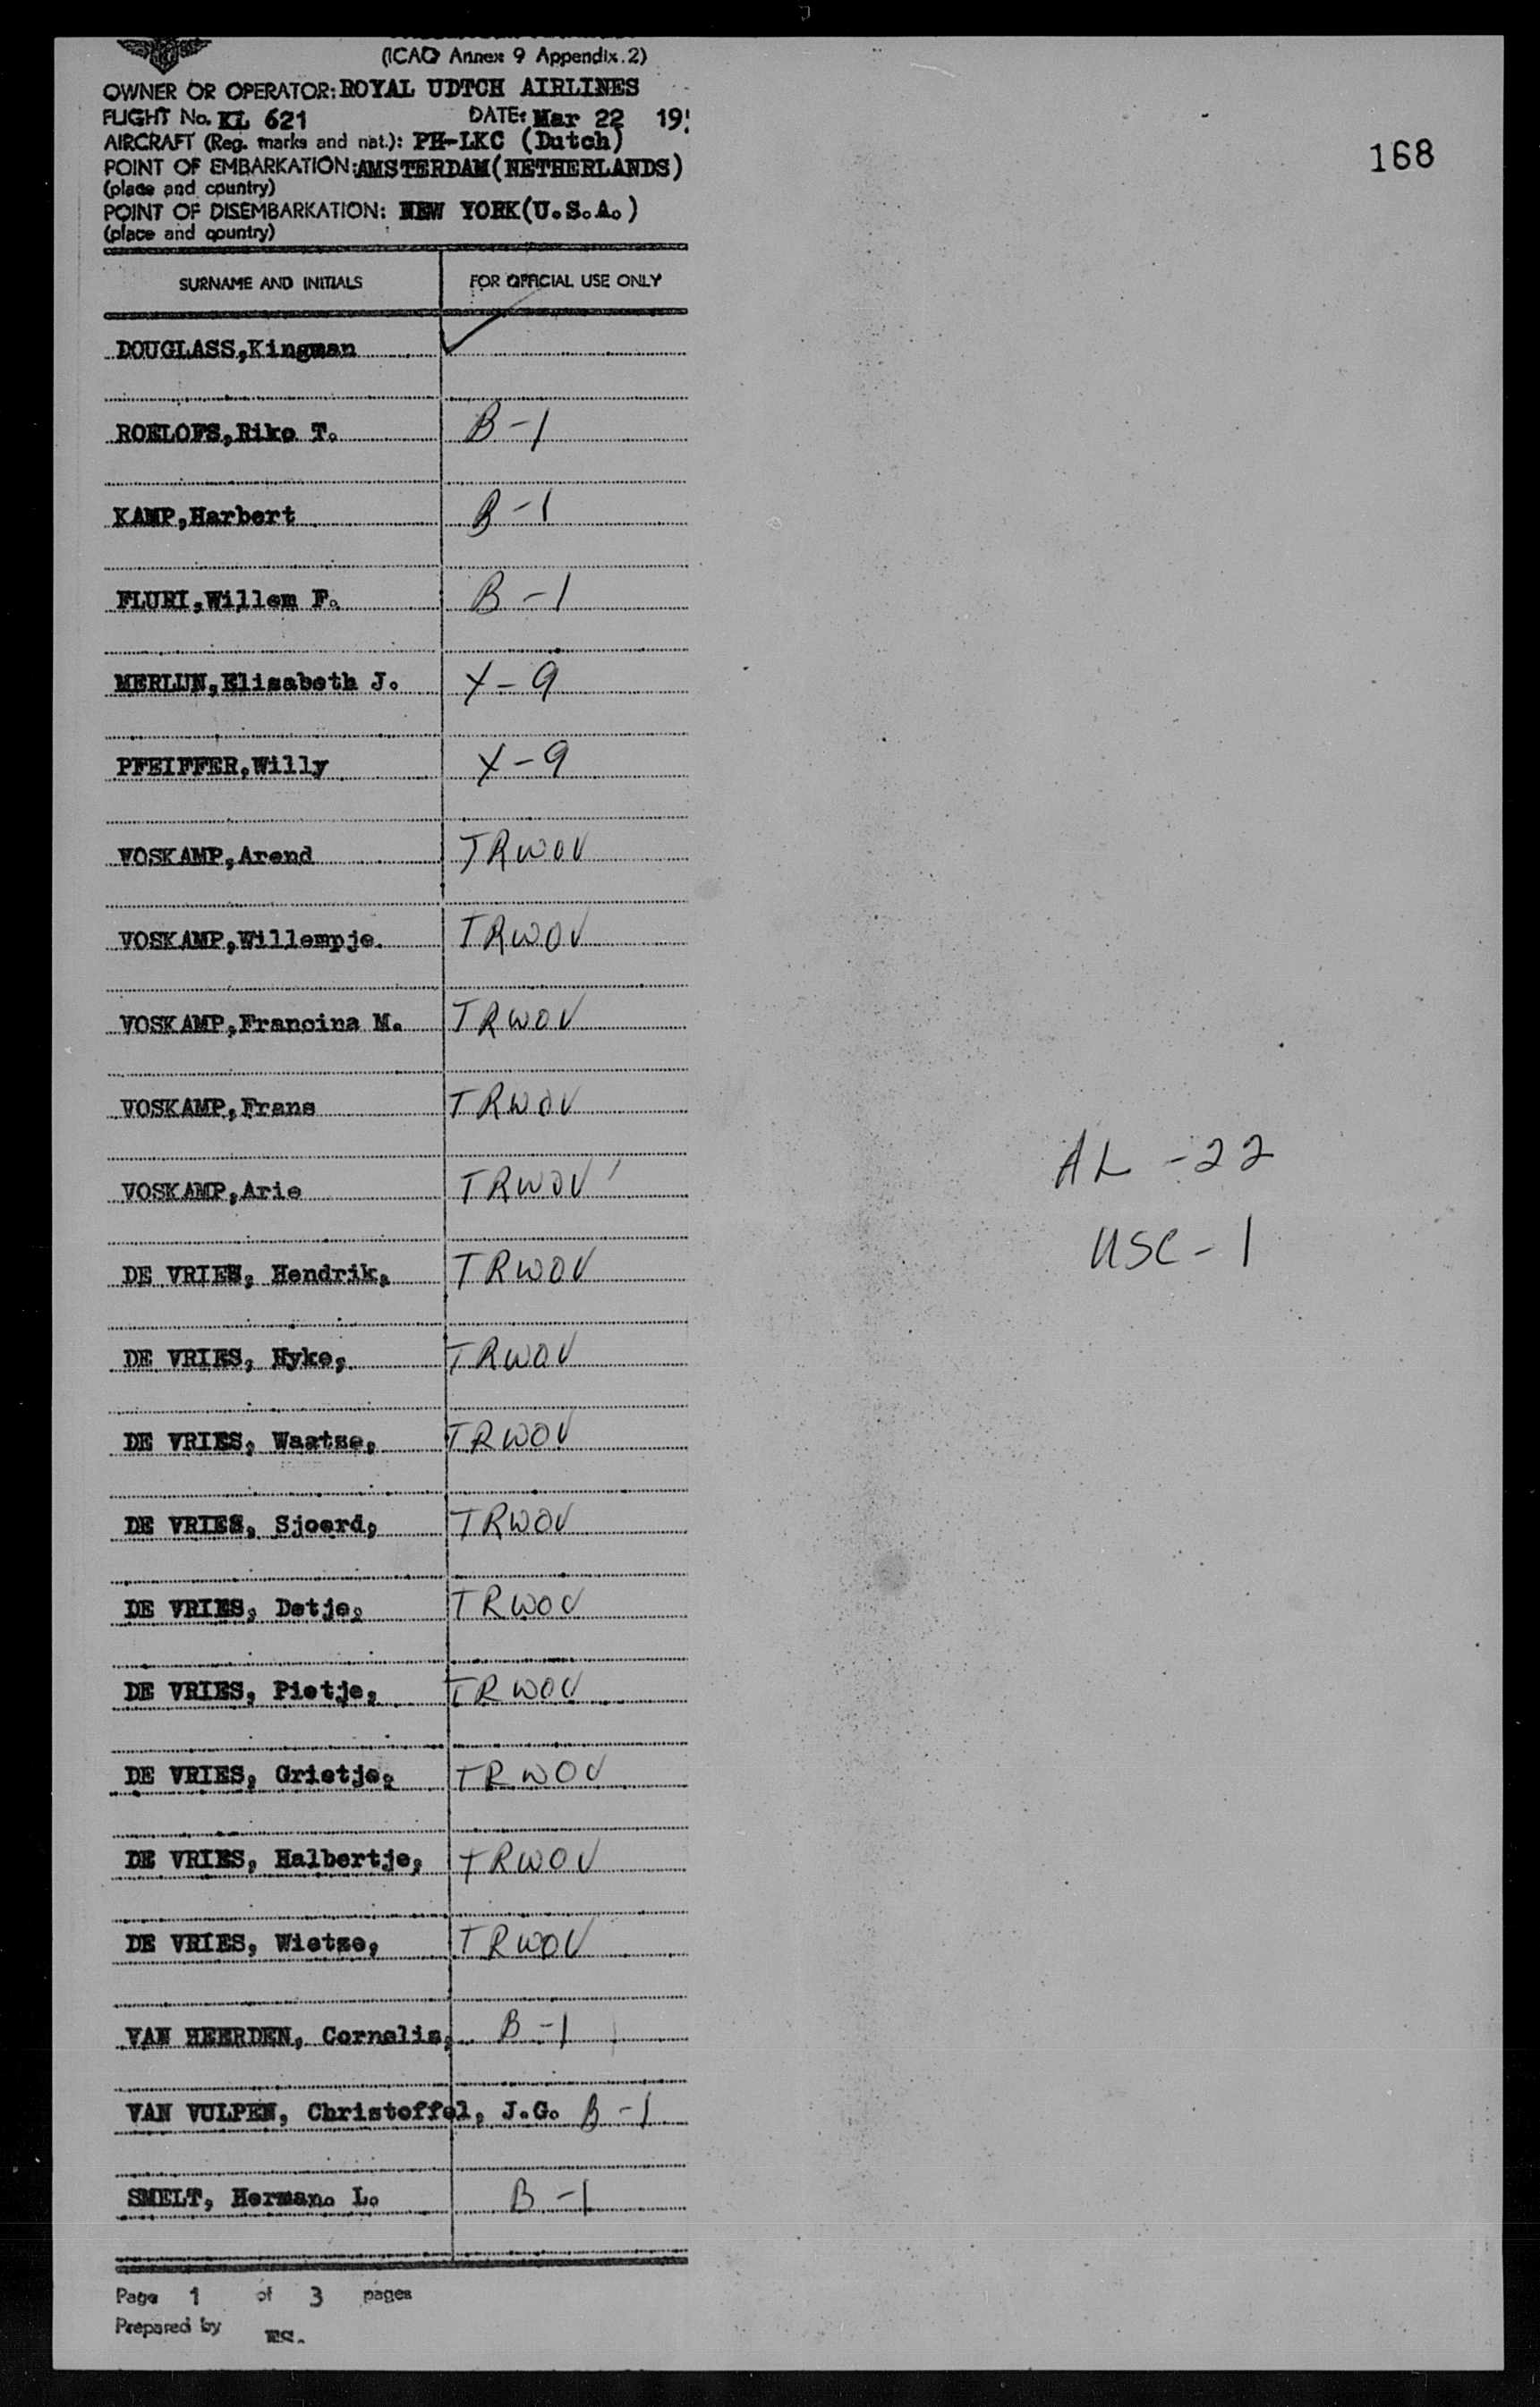 (ICAO Annex 9 Appendix.2)
OWNER OR OPERATOR: ROYAL UDTCH AIRLINES
FLIGHT No. KL 621 DATE: Mar 22 19
AIRCRAFT (Reg. marks and nat.): PH-LKC (Dutch)
POINT OF EMBARKATION: AMSTERDAM(NETHERLANDS)
(place and country)
168
POINT OF DISEMBARKATION: NEW YORK(U.S.A.)
(place and country)
SURNAME AND INITIALS FOR OFFICIAL USE ONLY
DOUGLASS,Kingman ✓
ROELOFS,Riko T. B-1
KAMP,Harbert B-1
FLURI,Willem F. B-1
MERLIJN,Elisabeth J. X-9
PFEIFFER,Willy X-9
VOSKAMP,Arend TRWOV
VOSKAMP,Willempje TRWOV
VOSKAMP,Francina M. TRWOV
VOSKAMP,Frans TRWOV
VOSKAMP,Arie TRWOV
DE VRIES, Hendrik, TRWOV
DE VRIES, Hyke, TRWOV
DE VRIES, Waatze, TRWOV
DE VRIES, Sjoerd, TRWOV
DE VRIES, Detje, TRWOV
DE VRIES, Pietje, TRWOV
DE VRIES, Grietje, TRWOV
DE VRIES, Halbertje, TRWOV
DE VRIES, Wietze, TRWOV
VAN HEERDEN, Cornelis, B-1
VAN VULPEN, Christoffel, J.G. B-1
SMELT, Herman. L. B-1
AL -22
USC-1
Page 1 of 3 pages
Prepared by